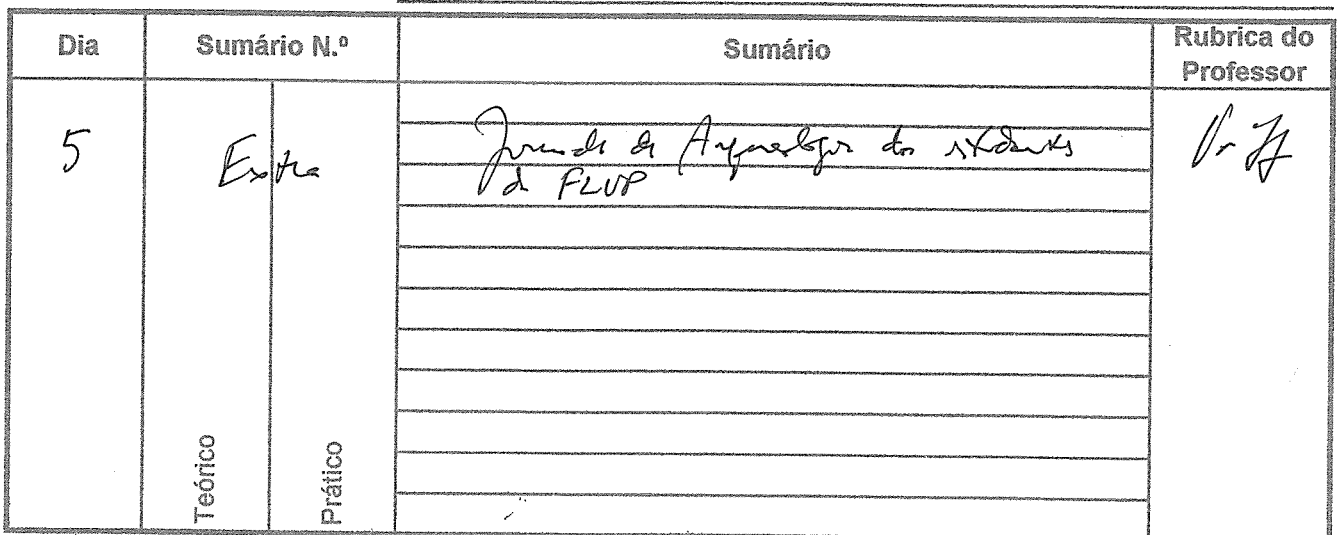 Dia Sumário N.º Sumário Rubrica do Professor
5 Extra Jornada de Arqueologia dos estudantes
da FLUP
Teórico Prático